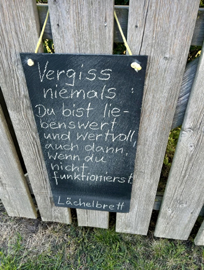 Vergiss
niemals:
Du bist lie-
benswert
und wertvoll,
auch dann
wenn du
nicht
funktionierst
Lächelbrett